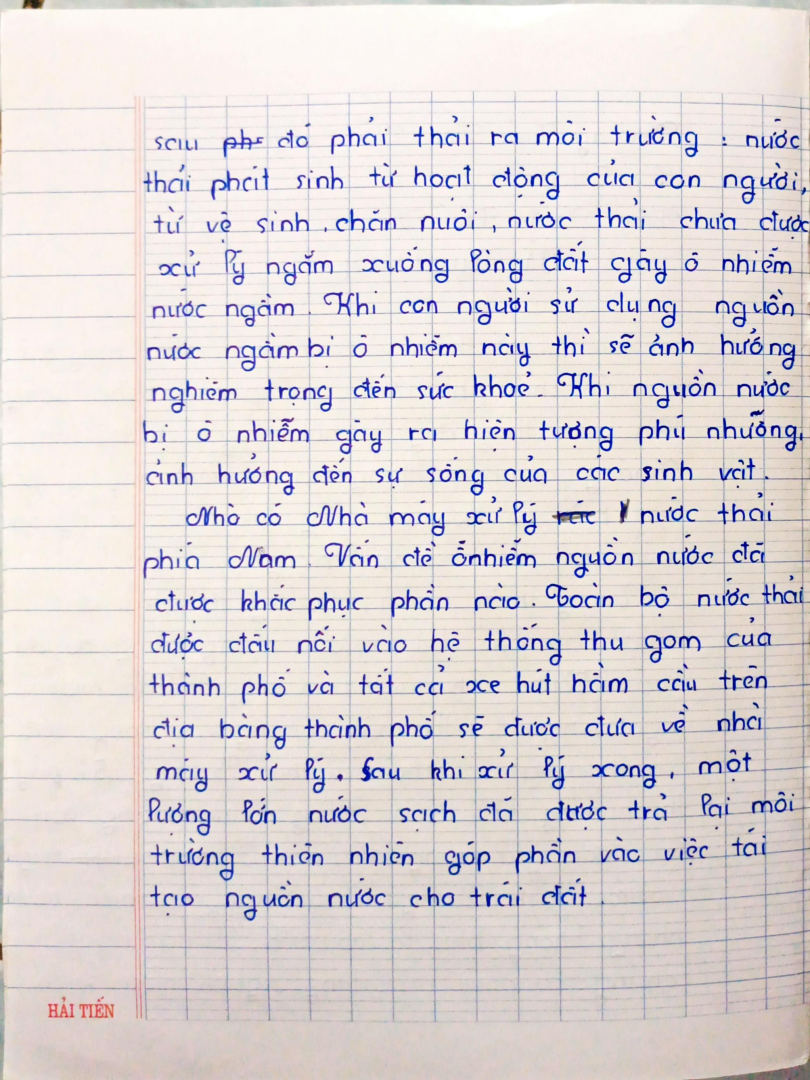 sau phs đó phải thải ra môi trường : nước
thải phát sinh từ hoạt động của con người,
từ vệ sinh, chăn nuôi, nước thải chưa được
xử lý ngấm xuống lòng đất gây ô nhiễm
nước ngầm. Khi con người sử dụng nguồn
nước ngầm bị ô nhiễm này thì sẽ ảnh hưởng
nghiêm trọng đến sức khoẻ. Khi nguồn nước
bị ô nhiễm gây ra hiện tượng phú nhưỡng,
ảnh hưởng đến sự sống của các sinh vật.
Nhờ có Nhà máy xử lý rác nước thải
phía Nam. Vấn đề ônhiễm nguồn nước đã
được khắc phục phần nào. Toàn bộ nước thải
được đấu nối vào hệ thống thu gom của
thành phố và tất cả xe hút hầm cầu trên
địa bàng thành phố sẽ được đưa về nhà
máy xử lý. Sau khi xử lý xong, một
lượng lớn nước sạch đã được trả lại môi
trường thiên nhiên góp phần vào việc tái
tạo nguồn nước cho trái đất.
HẢI TIẾN